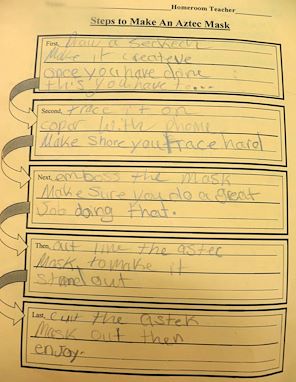 Homeroom Teacher
Steps to Make An Aztec Mask
First, Draw a
Make it createve
once you have done
this you have to...
Second, trace it on
copar with
Make shore you trace hard
Next, emboss the mask
Make sure you do a great
Job doing that.
Then, out line the astec
Mask to make it
stand out
Last, cut the astek
Mask out then
enjoy.